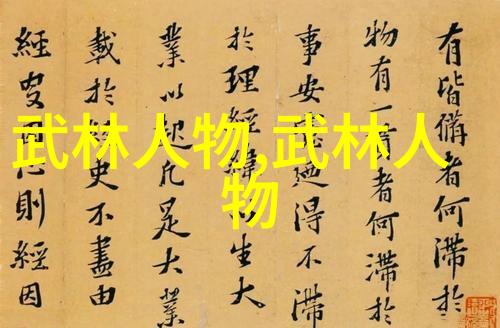 武林人物,武林人
物
有皆備者何滯於
物有一者何滯於
事安得不滯
於理經生大
業以起凡是大業
載於史不盡由
經心則經因